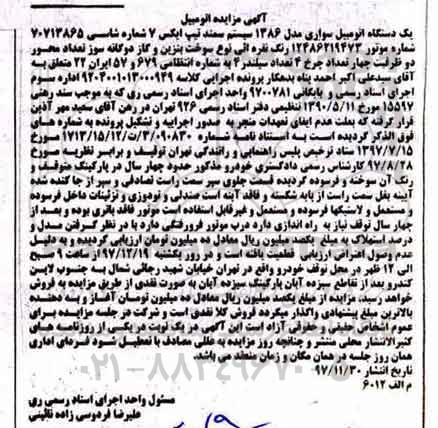 آگهی مزایده اتومبیل
یک دستگاه اتومبیل سواری مدل ۱۳۸۶ سیستم سمند تیپ ایکس ۷ شماره شاسی ۷۰۷۱۳۸۶۵
شماره موتور ۱۲۴۸۶۲۱۹۴۷۳ رنگ نقره ائی نوع سوخت بنزین و گاز دوگانه سوز تعداد محور
دو ظرفیت چهار تعداد چرخ ۴ تعداد سیلندر ۴ به شماره انتظامی ۶۷۹ و ۵۷ ایران ۲۲ متعلق به
آقای سیدعلی اکبر احمد پناه بدهکار پرونده اجرایی کلاسه ۹۲۰۴۰۰۱۰۱۳۰۰۰۹۴۹ اداره سوم
اجرای اسناد رسمی به بایگانی ۹۷۰۰۷۸۱ واحد اجرای اسناد رسمی ری که به موجب سند رهنی
۱۵۵۹۷ مورخ ۱۳۹۰/۵/۱۱ تنظیمی دفتر اسناد رسمی ۹۲۶ تهران در رهن آقای سعید مهر آذین
قرار گرفته که بعلت عدم ایفای تعهدات منجر به صدور اجرائیه و تشکیل پرونده به شماره های
فوق الذکر گردیده است به استناد نامه شماره ۱۷۱۳/۱۵/۱۲/ت/۳/۰۹۰۸۳۰ مورخ
۱۳۹۷/۷/۱۵ ستاد ترخیص پلیس راهنمایی و رانندگی تهران توقیف و برابر نظریه مورخ
۹۷/۸/۲۸ کارشناس رسمی دادگستری خودرو مذکور حدود چهار سال در پارکینگ متوقف و
رنگ آن سوخته و فرسوده گردیده قسمت جلوی سپر سمت راست تصادفی و سپر از جا کنده شده
آئینه بغل سمت راست از پایه شکسته و فاقد آینه است صندلی و تودوزی و تزئینات داخل فرسوده
و مستعمل و لاستیکها فرسوده و مستعمل و غیرقابل استفاده است موتور فاقد باتری بوده و بعد از
چهار سال توقف نیاز به راه اندازی دارد درب موتور فرورفتگی دارد با در نظر گرفتن مدل و
درصد استهلاک به مبلغ یکصد میلیون ریال معادل ده میلیون تومان ارزیابی گردیده و به دلیل
عدم وصول اعتراض ارزیابی قطعیت یافته است و در روز یکشنبه ۹۷/۱۲/۱۹ از ساعت ۹ صبح
الی ۱۲ ظهر در محل توقف خودرو واقع در تهران خیابان شهید رجائی شمال به جنوب لاین
کندرو بعد از تقاطع سیزده آبان پارکینگ سیزده آبان به صورت نقدی از طریق مزایده به فروش
خواهد رسید، مزایده از مبلغ یکصد میلیون ریال معادل ده میلیون تومان آغاز و به دهنده
بالاترین مبلغ پیشنهادی واگذار میگردد فروش کلا نقدی است و شرکت در جلسه مزایده برای
عموم اشخاص حقیقی و حقوقی آزاد است این آگهی در یک نوبت در یکی از روزنامه های
کثیرالانتشار محلی منتشر و چنانچه روز مزایده به عللی مصادف با تعطیل شود فردای اداری
همان روز جلسه در همان مکان و زمان منعقد می باشد.
تاریخ انتشار ۹۷/۱۱/۳۰
م الف ۶۰۱۲
مسئول واحد اجرای اسناد رسمی ری
علیرضا فردوسی زاده نائینی
۰۲۱-۸۸۳۴۹۶۷۰